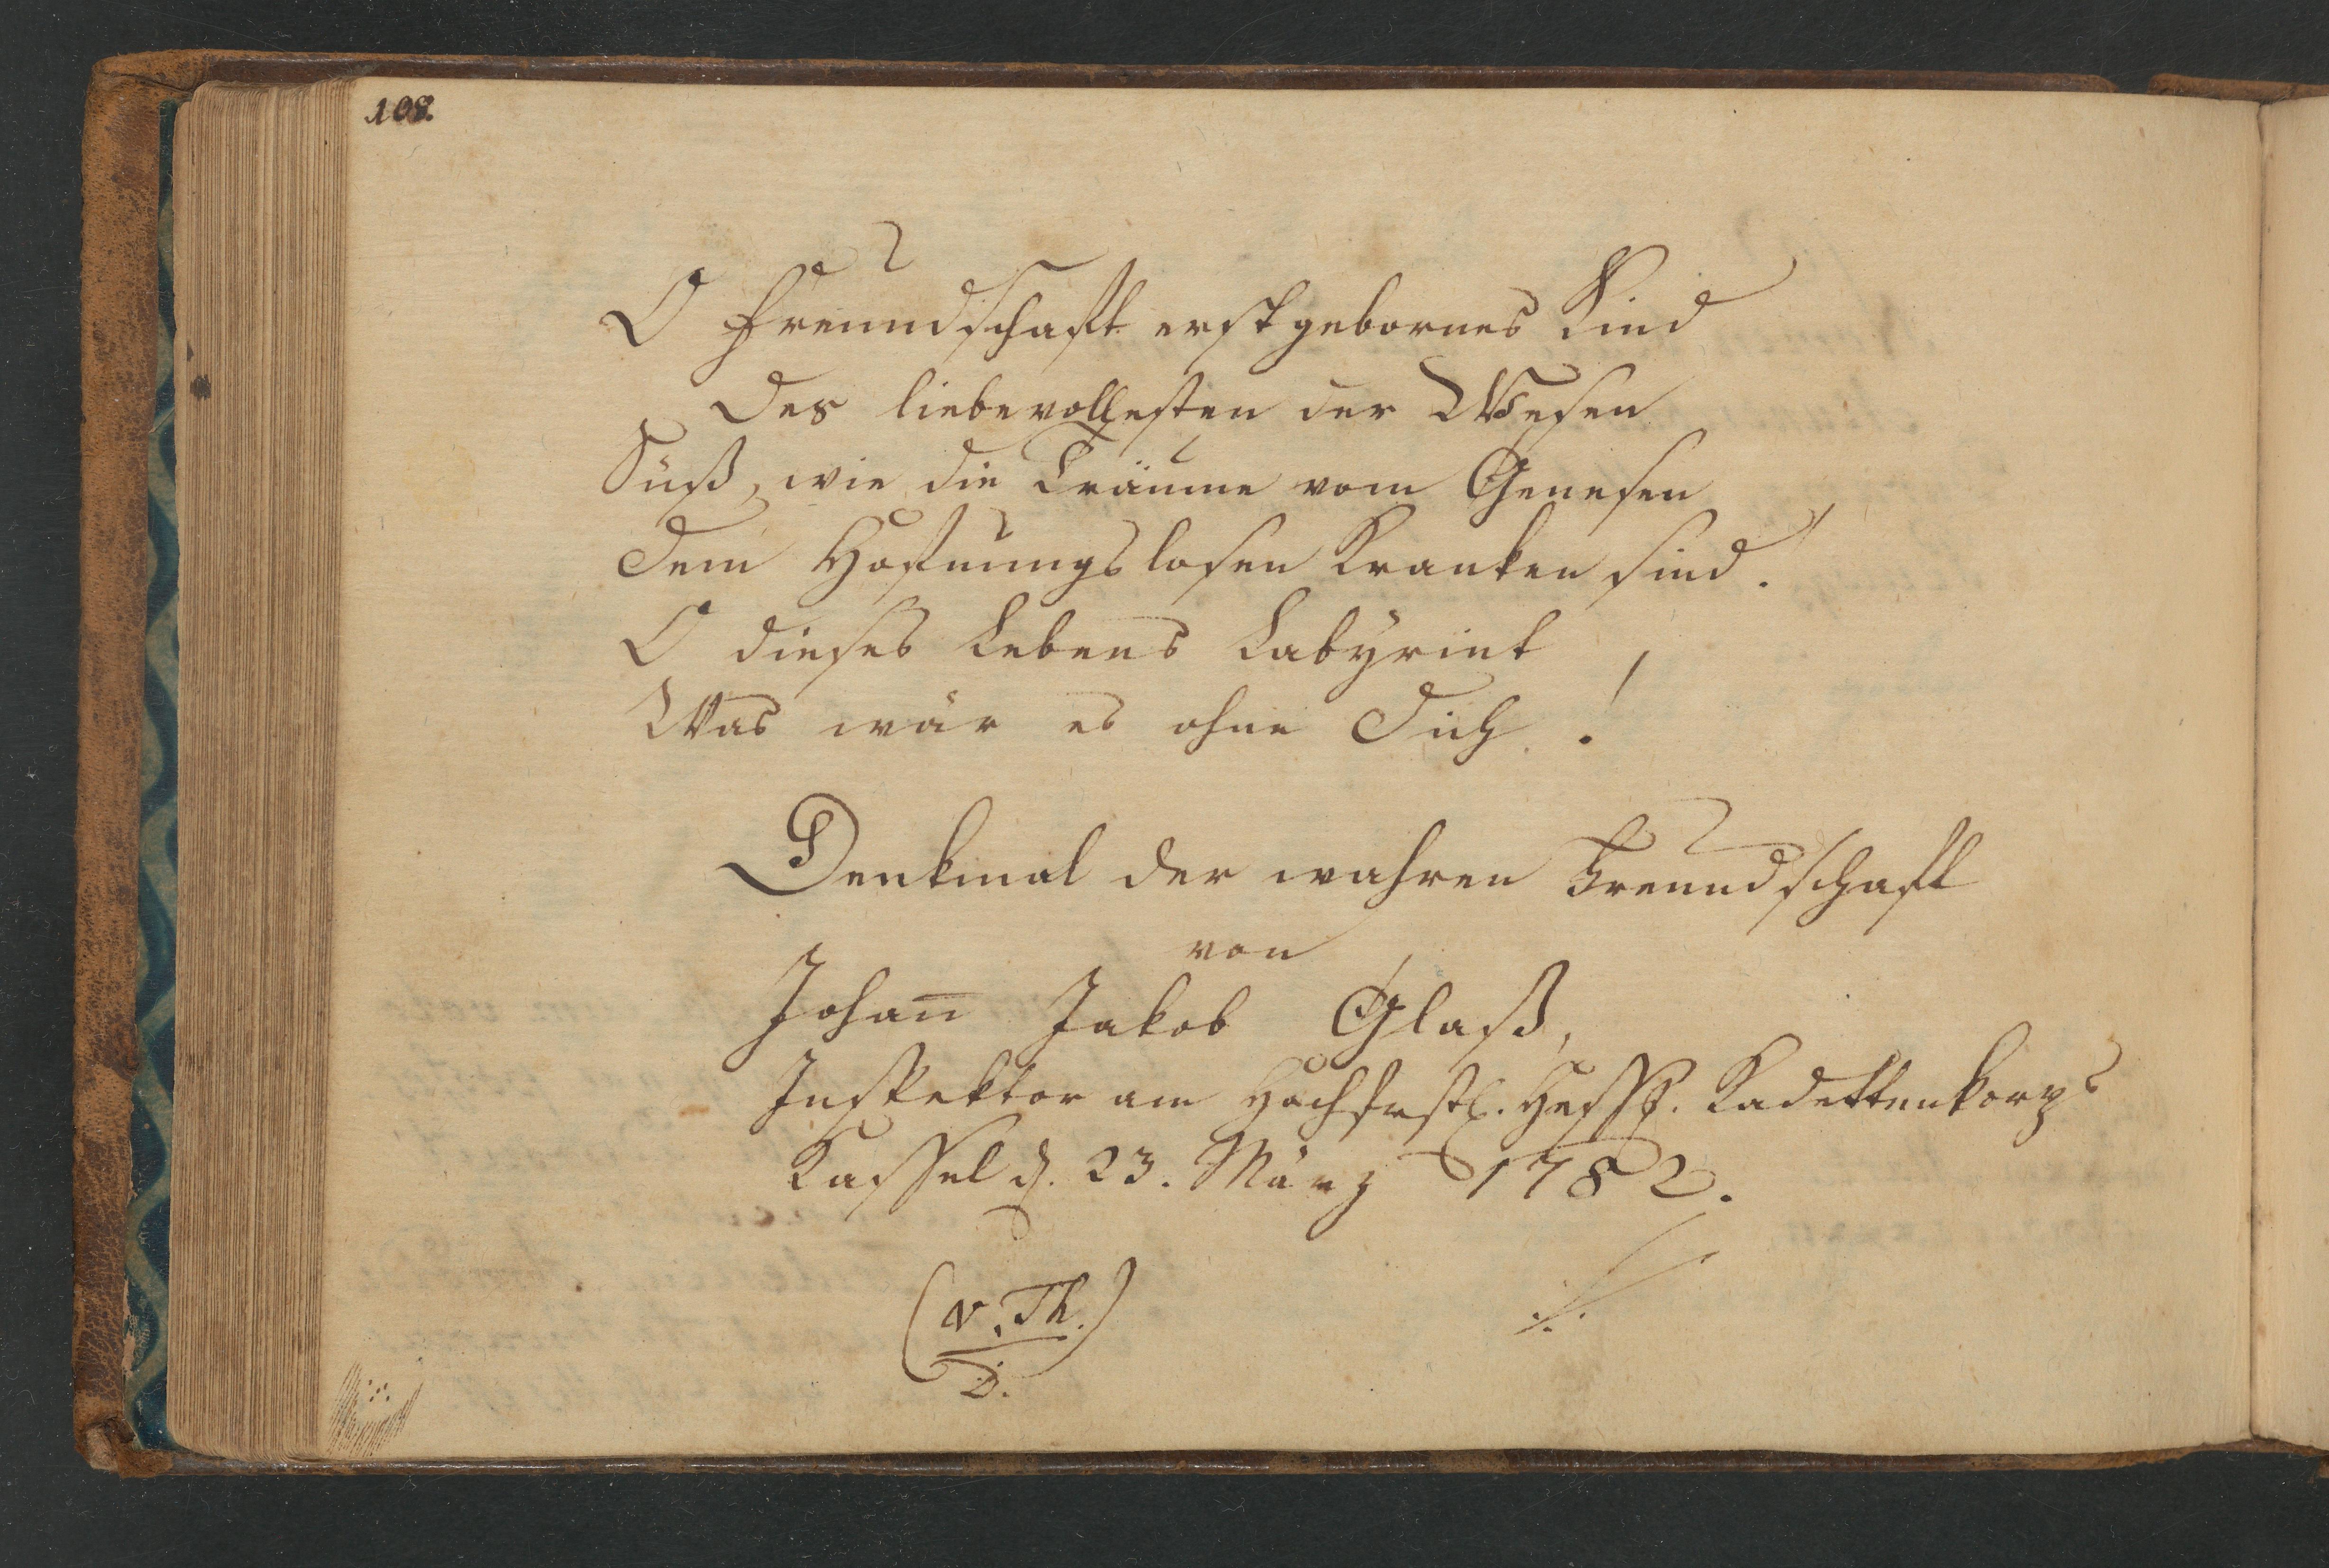 108.
O Freundschaft erstgebornes Kind
Des liebevollesten der Wesen
Süß, wie die Träume vom Genesen
Dem Hofnungslosen Kranken sind!
O dieses Lebens Labÿrint
Was wär es ohne Dich!
Denkmal der wahren Freundschaft
von
Johan̄ Jakob Glaß,
Inspektor am Hochfrstl. Heßß. Kadettenkorps
Kassel d. 23. März 1782.
(v. Th.)
D.